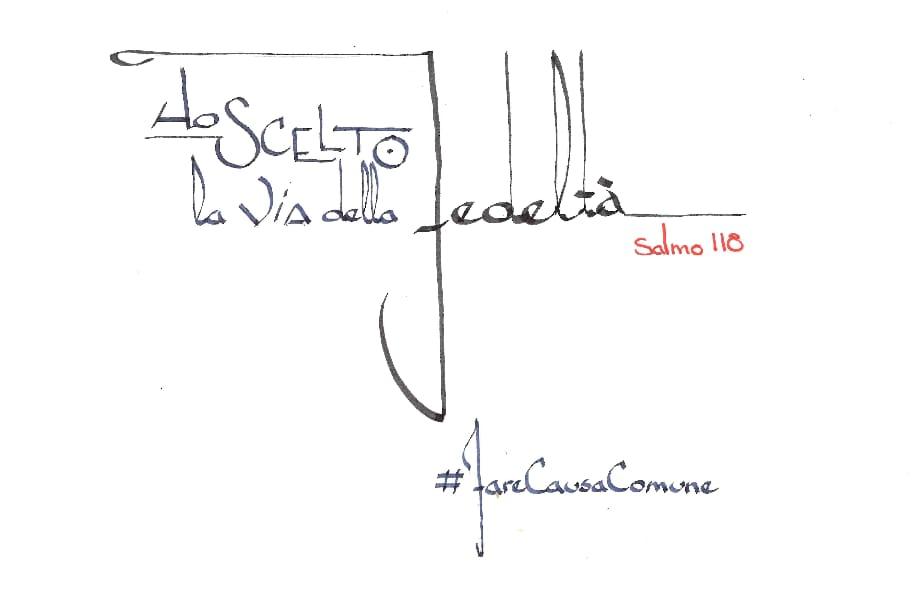 Ho SCELTO
la Via della fedeltà
Salmo 118
#fareCausaComune